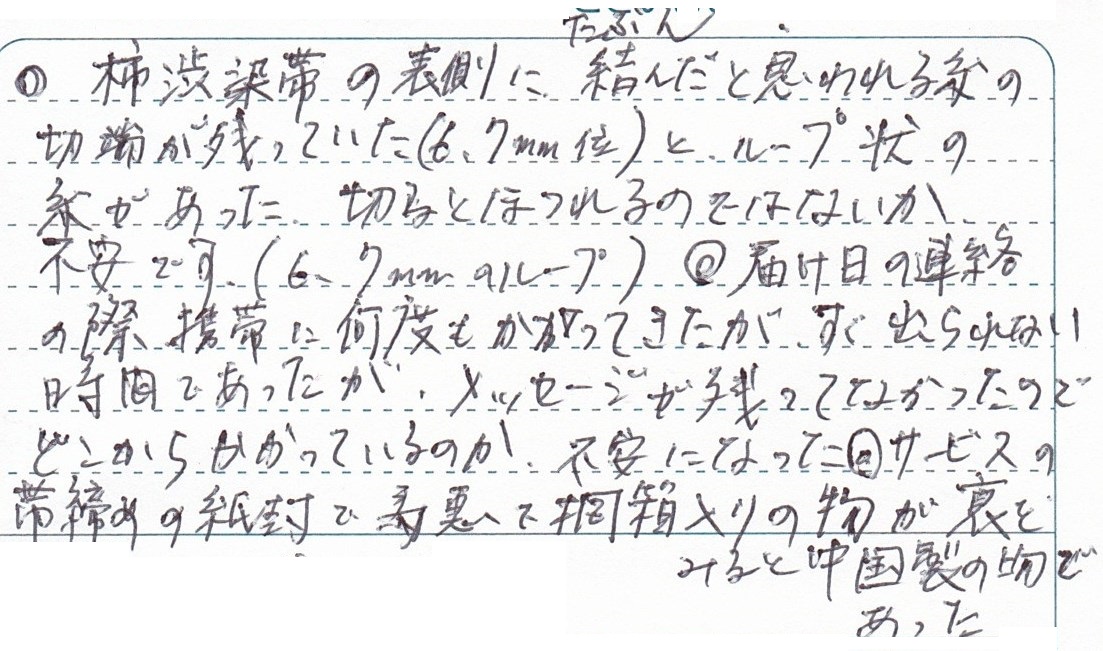 たぶん
① 柿渋染帯の表側に、結んだと思われる糸の
切端が残っていた(6、7mm位)と、ループ状の
糸があった、切るとほつれるのではないか、
不安です。(6、7mmのループ) ② 届け日の連絡
の際携帯に何度もかかってきたが、すぐ出られない
時間であったが、メッセージが残ってなかったので
どこからかかっているのか、不安になった ③ サービスの
帯締めの紙封で 桐箱入りの物が裏を
みると中国製の物で
あった